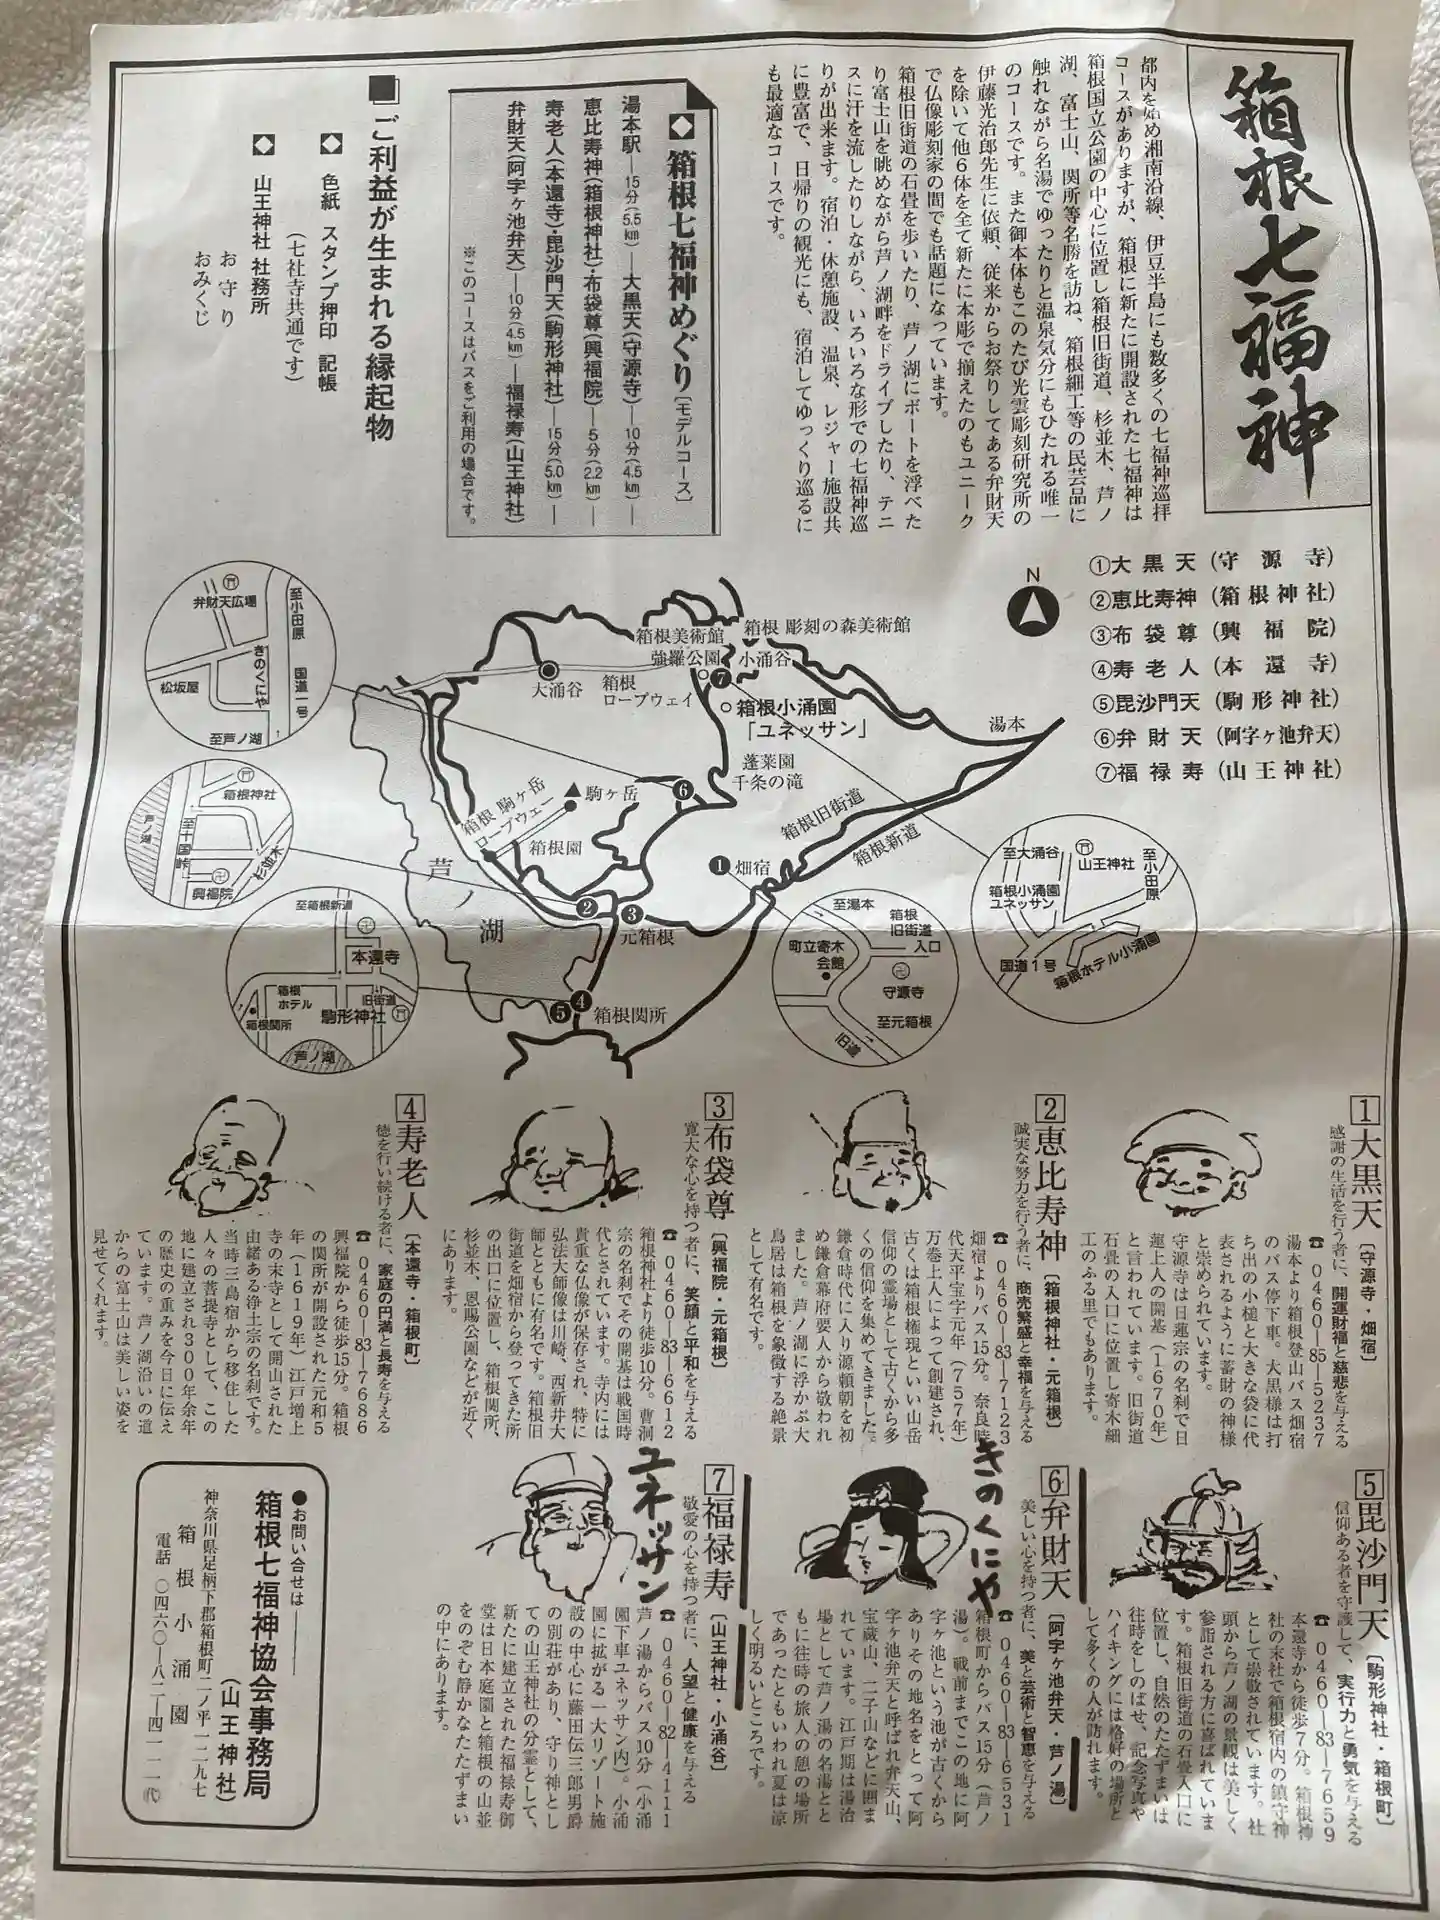 箱根七福神
都内を始め湘南沿線、伊豆半島にも数多くの七福神巡拝
コースがありますが、箱根に新たに開設された七福神は
箱根国立公園の中心に位置し箱根旧街道、杉並木、芦ノ
湖、富士山、関所等名勝を訪ね、箱根細工等の民芸品に
触れながら名湯でゆったりと温泉気分にもひたれる唯一
のコースです。また御本体もこのたび光雲彫刻研究所の
伊藤光治郎先生に依頼、従来からお祭りしてある弁財天
を除いて他6体を全て新たに本彫で揃えたのもユニーク
で仏像彫刻家の間でも話題になっています。
箱根旧街道の石畳を歩いたり、芦ノ湖にボートを浮べた
り富士山を眺めながら芦ノ湖畔をドライブしたり、テニ
スに汗を流したりしながら、いろいろな形での七福神巡
りが出来ます。宿泊・休憩施設、温泉、レジャー施設共
に豊富で、日帰りの観光にも、宿泊してゆっくり巡るに
も最適なコースです。
◆箱根七福神めぐり〔モデルコース〕
湯本駅―15分(5.5km)―大黒天(守源寺)―10分(4.5km)―
恵比寿神(箱根神社)・布袋尊(興福院)―5分(2.2km)―
寿老人(本還寺)・毘沙門天(駒形神社)―15分(5.0km)―
弁財天(阿字ヶ池弁天)―10分(4.5km)―福禄寿(山王神社)
※このコースはバスをご利用の場合です。
■ご利益が生まれる縁起物
◆色紙 スタンプ押印 記帳
(七社寺共通です)
◆山王神社 社務所
お守り
おみくじ
①大黒天(守源寺)
②恵比寿神(箱根神社)
③布袋尊(興福院)
④寿老人(本還寺)
⑤毘沙門天(駒形神社)
⑥弁財天(阿字ヶ池弁天)
⑦福禄寿(山王神社)
N
箱根美術館
箱根 彫刻の森美術館
強羅公園
小涌谷
大涌谷
箱根
ロープウェイ
7
箱根小涌園
「ユネッサン」
湯本
蓬莱園
千条の滝
6
駒ヶ岳
箱根 駒ヶ岳
ロープウェー
箱根園
箱根旧街道
箱根新道
1
畑宿
芦ノ湖
2
3
元箱根
4
5
箱根関所
弁財天広場
至小田原
きのくにや
松坂屋
国道一号
至芦ノ湖
箱根神社
芦ノ湖
至十国峠
杉並木
興福院
至箱根新道
本還寺
箱根
ホテル
旧街道
箱根関所
駒形神社
芦ノ湖
至湯本
箱根
旧街道
入口
町立寄木
会館
守源寺
至元箱根
旧道
至大涌谷
山王神社
至小田原
箱根小涌園
ユネッサン
国道1号
箱根ホテル小涌園
1大黒天〔守源寺・畑宿〕
感謝の生活を行う者に、開運財福と慈悲を与える
☎0460―85―5237
湯本より箱根登山バス畑宿
のバス停下車。大黒様は打
ち出の小槌と大きな袋に代
表されるように蓄財の神様
と崇められています。
守源寺は日蓮宗の名刹で日
蓮上人の開基(1670年)
と言われています。旧街道
石畳の入口に位置し寄木細
工のふる里でもあります。
2恵比寿神〔箱根神社・元箱根〕
誠実な努力を行う者に、商売繁盛と幸福を与える
☎0460―83―7123
畑宿よりバス15分。奈良時
代天平宝字元年(757年)
万巻上人によって創建され、
古くは箱根権現といい山岳
信仰の霊場として古くから多
くの信仰を集めてきました。
鎌倉時代に入り源頼朝を初
め鎌倉幕府要人から敬われ
ました。芦ノ湖に浮かぶ大
鳥居は箱根を象徴する絶景
として有名です。
3布袋尊〔興福院・元箱根〕
寛大な心を持つ者に、笑顔と平和を与える
☎0460―83―6612
箱根神社より徒歩10分。曹洞
宗の名刹でその開基は戦国時
代とされています。寺内には
貴重な仏像が保存され、特に
弘法大師像は川崎、西新井大
師とともに有名です。箱根旧
街道を畑宿から登ってきた所
の出口に位置し、箱根関所、
杉並木、恩賜公園などが近く
にあります。
4寿老人〔本還寺・箱根町〕
徳を行い続ける者に、家庭の円満と長寿を与える
☎0460―83―7686
興福院から徒歩15分。箱根
の関所が開設された元和5
年(1619年)江戸増上
寺の末寺として開山された
由緒ある浄土宗の名刹です。
当時三島宿から移住した
人々の菩提寺として、この
地に建立され300年余年
の歴史の重みを今日に伝え
ています。芦ノ湖沿いの道
からの富士山は美しい姿を
見せてくれます。
5毘沙門天〔駒形神社・箱根町〕
信仰ある者を守護して、実行力と勇気を与える
☎0460―83―7659
本還寺から徒歩7分。箱根神
社の末社で箱根宿内の鎮守神
として崇敬されています。社
頭から芦ノ湖の景観は美しく
参詣される方に喜ばれていま
す。箱根旧街道の石畳入口に
位置し、自然のたたずまいは
往時をしのばせ、記念写真や
ハイキングには格好の場所と
して多くの人が訪れます。
6弁財天〔阿字ヶ池弁天・芦ノ湯〕
美しい心を持つ者に、美と芸術と智恵を与える
☎0460―83―6531
きのくにや
箱根町からバス15分(芦ノ
湯)。戦前までこの地に阿
字ヶ池という池が古くから
ありその地名をとって阿
字ヶ池弁天と呼ばれ弁天山、
宝蔵山、二子山などに囲ま
れています。江戸期は湯治
場として芦ノ湯の名湯とと
もに往時の旅人の憩の場所
であったともいわれ夏は涼
しく明るいところです。
7福禄寿〔山王神社・小涌谷〕
敬愛の心を持つ者に、人望と健康を与える
☎0460―82―4111
ユネッサン
芦ノ湯からバス10分(小涌
園下車ユネッサン内)。小涌
園に拡がる一大リゾート施
設の中心に藤田伝三郎男爵
の別荘があり、守り神とし
ての山王神社の分霊として、
新たに建立された福禄寿御
堂は日本庭園と箱根の山並
をのぞむ静かなたたずまい
の中にあります。
●お問い合せは
箱根七福神協会事務局
(山王神社)
神奈川県足柄下郡箱根町二ノ平一二九七
箱根小涌園
電話 〇四六〇―八二―四一一一㈹